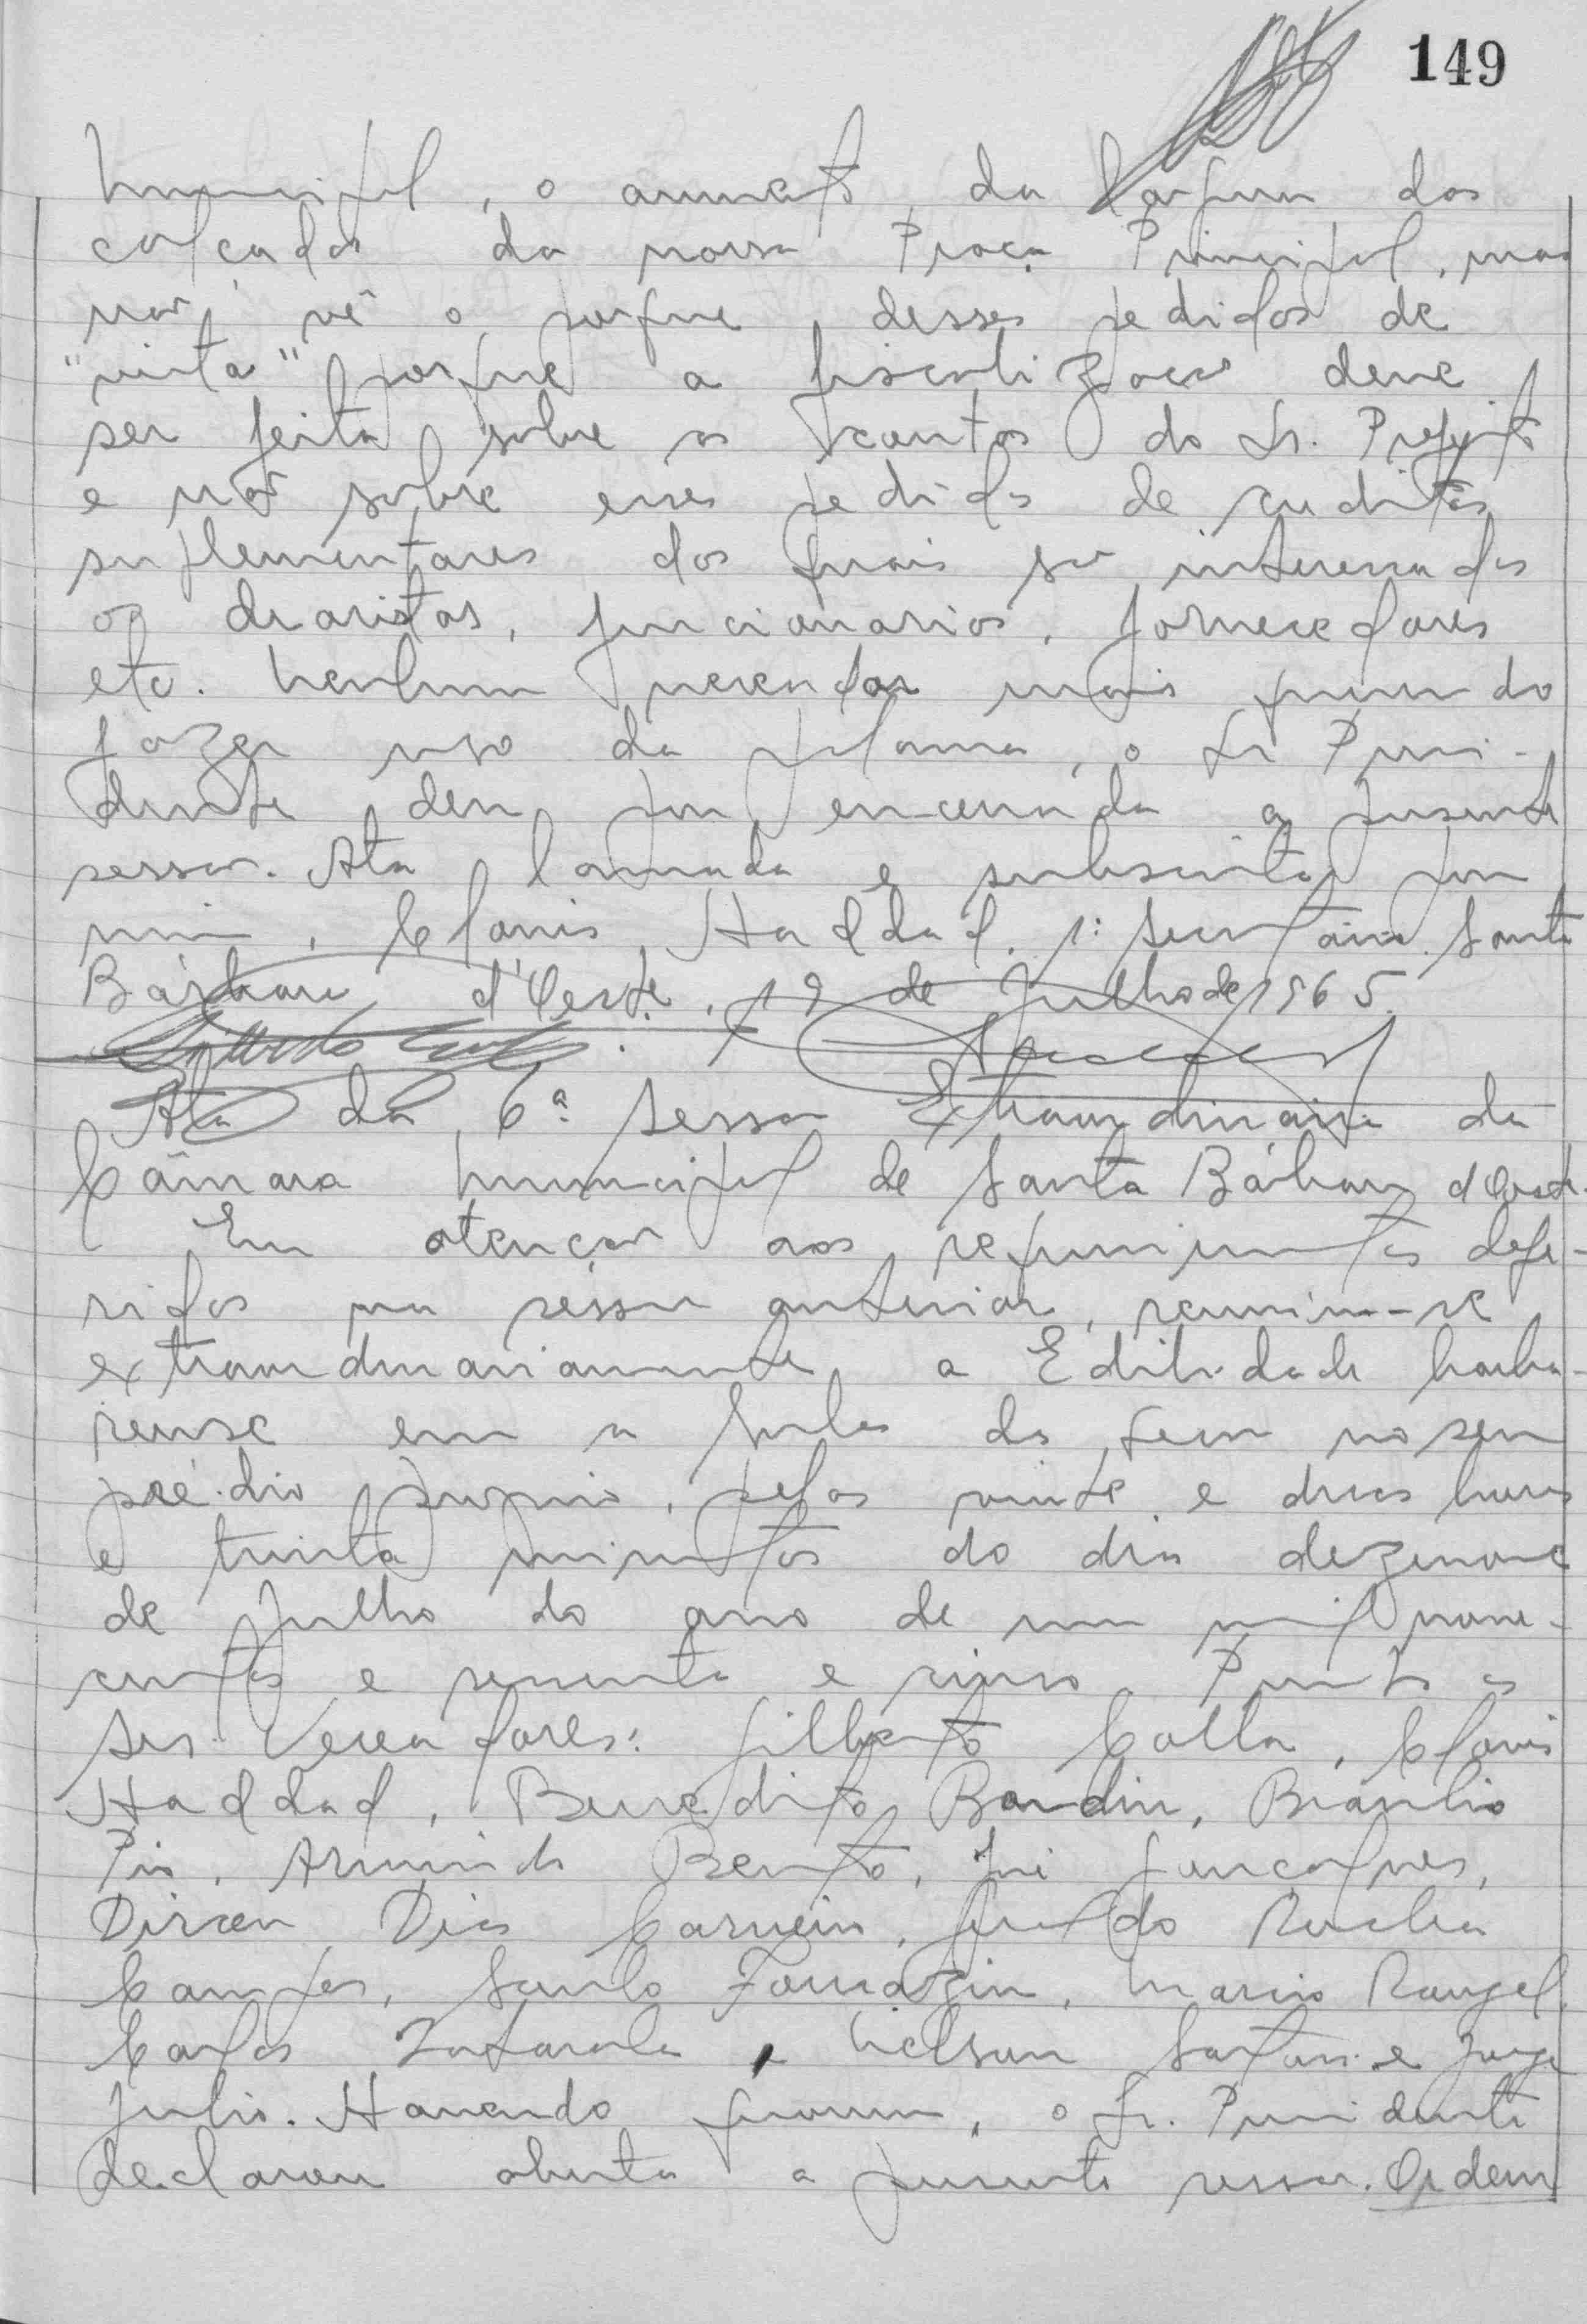 149
Municipal, o aumento da largura das
calçadas da nossa Praça Principal, mas
não vê o porque desses pedidos de
"vista" porque a fiscalização deve
ser feita sobre as contas do Sr. Prefeito
e não sobre esses pedidos de creditos
suplementares dos quais são interessados
os diaristas, funcionarios, fornecedores
etc. Nenhum vereador mais querendo
fazer uso da palavra, o Sr Presi-
dente deu por encerrada a presente
sessão. Ata lavrada e subscrita por
mim, Clovis Haddad, 1º Secretário. Santa
Bárbara d'Oeste, 19 de Julho de 1965.
Ata da 6ª Sessão Extraordinaria da
Câmara Municipal de Santa Bárbara d'Oeste.
Em atenção aos requerimentos defe-
ridos na sessão anterior, reuniu-se
extraordinariamente a Edilidade barba-
rense em a Sala do Juri no seu
prédio proprio, pelas vinte e duas horas
e trinta minutos do dia dezenove
de Julho do ano de um mil nove-
centos e sessenta e cinco. Presentes os
Srs. Vereadores: Gilberto Calla, Clovis
Haddad, Benedito Bardin, Braulio
Pio, Armindo Bento, José Gonçalves,
Dirceu Dias Carneiro, Geraldo Rocha
Campos, Santo Tomazin, Mario Rangel,
Carlos e Nelson e Jorge
Julio. Havendo quorum, o Sr. Presidente
declarou aberta a presente sessão. Ordem